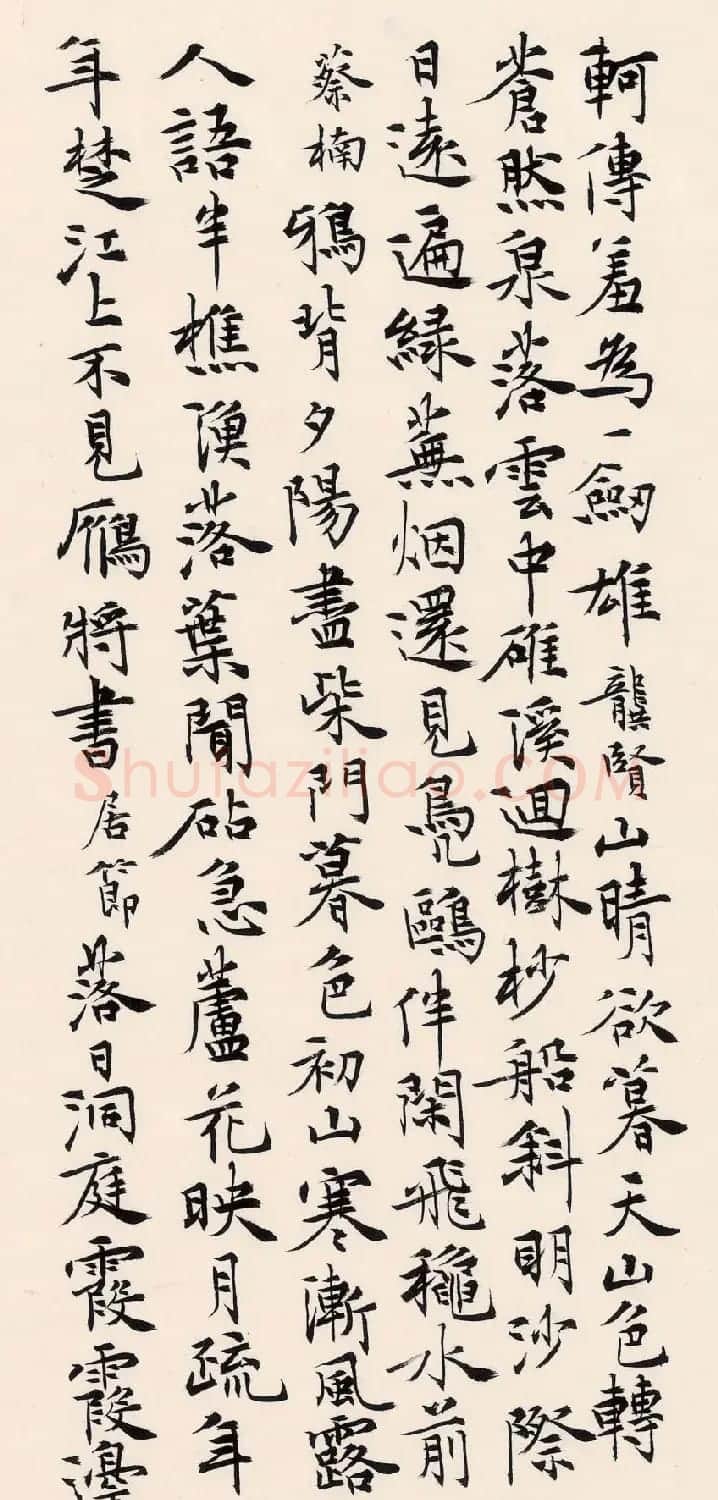 軻傳羞為一劒雄龔賢山晴欲暮天山色轉
蒼然泉落雲中碓溪迴樹杪船斜明沙際
日遠遍綠蕪烟還見鳧鷗伴閑飛龝水前
蔡楠鴉背夕陽盡柴門暮色初山寒漸風露
人語半樵漁落葉聞砧急蘆花映月疏年
年楚江上不見鴈將書居節落日洞庭霞霞邊
Shufaziliao.COM